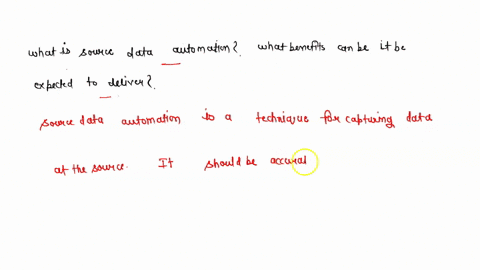 what is source data automation? what benefits can be it be
expected to deliver?
source data automation is a technique for capturing data
at the source. It should be accurat